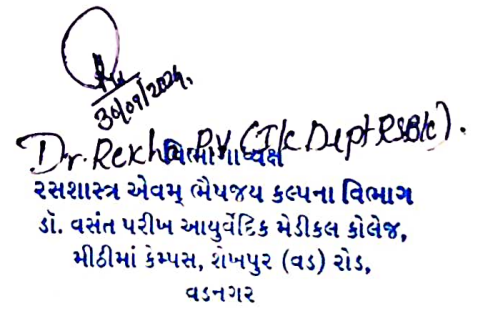 30/09/2024.
Dr. Rekha P.V (I/c Dept RSBK).
વિભાગાધ્યક્ષ
રસશાસ્ત્ર એવમ્ ભૈષજય કલ્પના વિભાગ
ડૉ. વસંત પરીખ આયુર્વેદિક મેડીકલ કોલેજ,
મીઠીમાં કેમ્પસ, શેખપુર (વડ) રોડ,
વડનગર